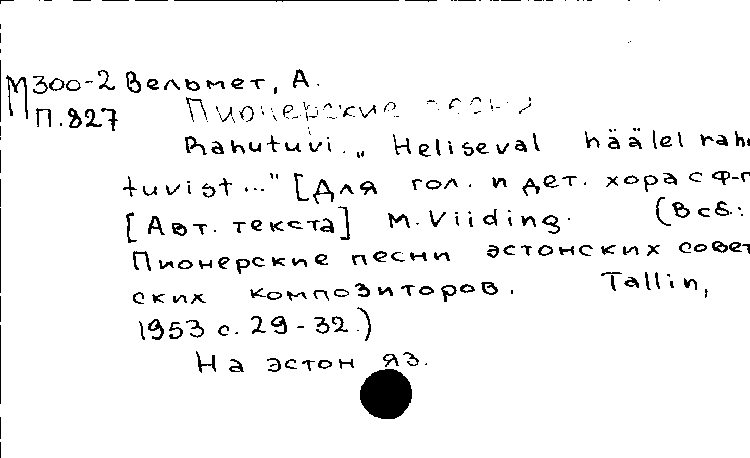 М300-2 Вельмет, А.
П.827 Пионерские песни
Rahutuvi. „Heliseval häälel rahu
tuvist..." [Для гол. и дет. хора с ф-п
[Авт. текста] M. Viiding. (В сб.:
Пионерские песни эстонских совет
ских композиторов. Tallin,
1953 с. 29-32.)
На эстон яз.